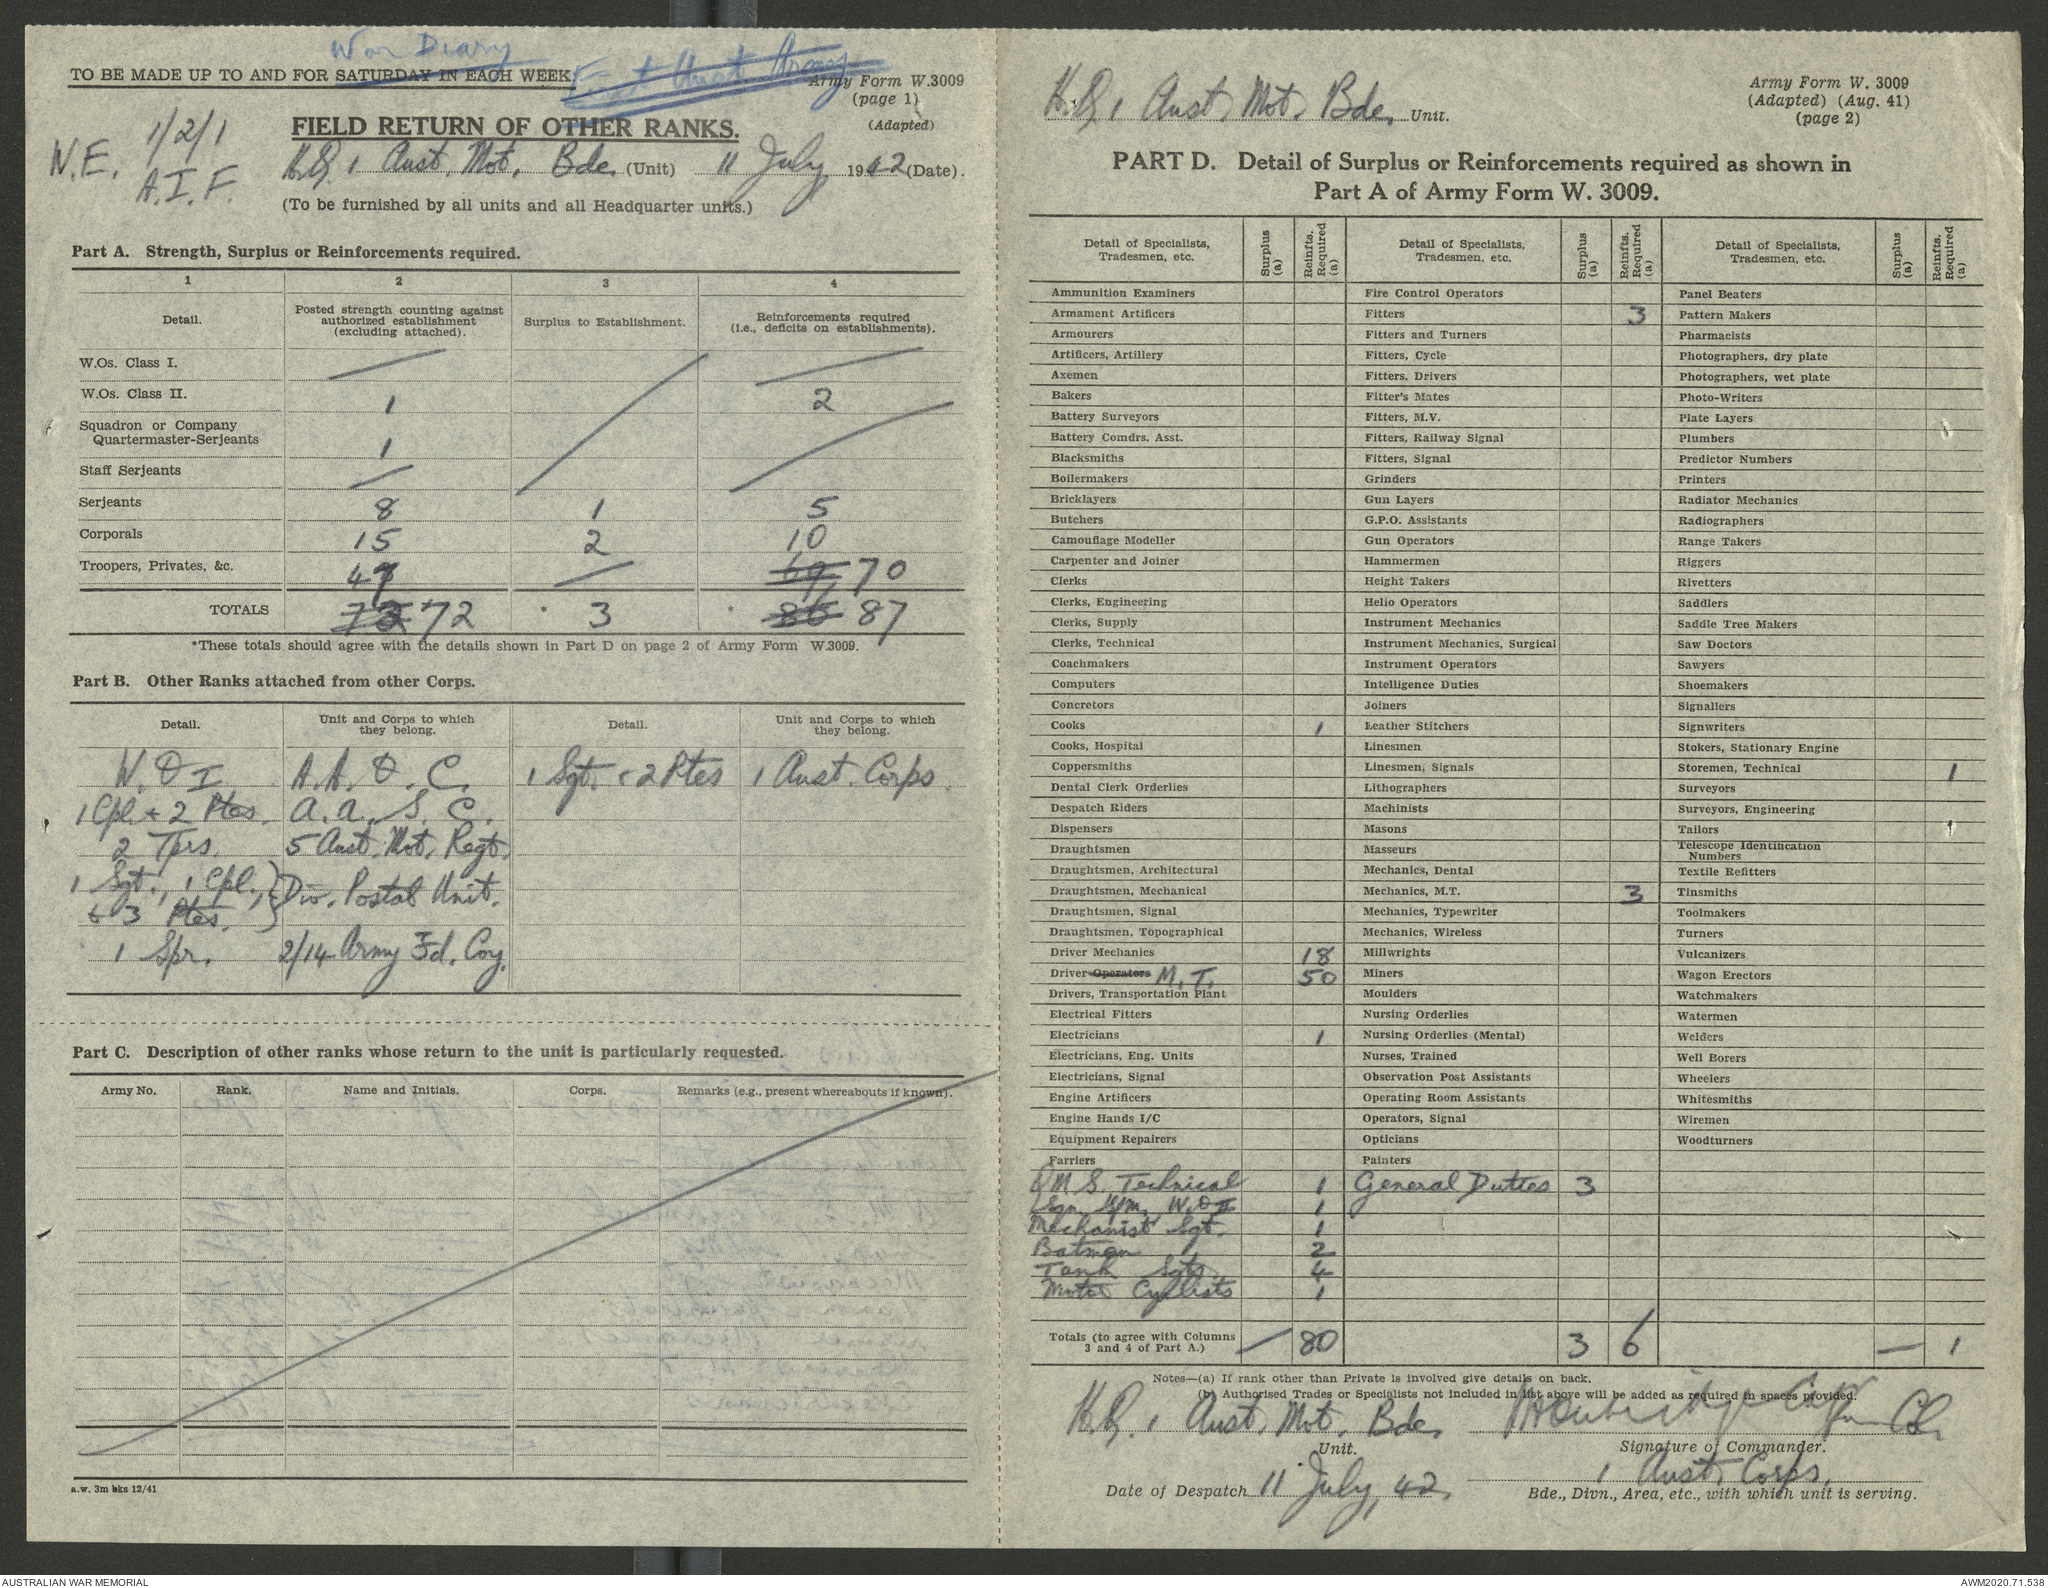 War Diary
First Aust Army
TO BE MADE UP TO AND FOR SATURDAY IN EACH WEEK.
Army Form W.3009
(page 1)
(Adapted)
N.E. 1/2/1
A.I.F.
FIELD RETURN OF OTHER RANKS.
H.Q. 1 Aust. Mot. Bde. (Unit) 11 July 1942 (Date).
(To be furnished by all units and all Headquarter units.)
Part A. Strength, Surplus or Reinforcements required.
1 2 3 4
Detail. Posted strength counting against authorized establishment (excluding attached). Surplus to Establishment. Reinforcements required (i.e., deficits on establishments).
W.Os. Class I. / / /
W.Os. Class II. 1 2
Squadron or Company
Quartermaster-Serjeants 1 /
Staff Serjeants /
Serjeants 8 1 5
Corporals 15 2 10
Troopers, Privates, &c. 47 / 69 70
TOTALS 73 72 * 3 * 86 87
*These totals should agree with the details shown in Part D on page 2 of Army Form W.3009.
Part B. Other Ranks attached from other Corps.
Detail. Unit and Corps to which they belong. Detail. Unit and Corps to which they belong.
W.O I A.A.O.C. 1 Sgt. & 2 Ptes 1 Aust. Corps
1 Cpl. + 2 Ptes. A.A.S.C.
2 Tprs. 5 Aust. Mot. Regt.
1 Sgt., 1 Cpl., } Div. Postal Unit.
& 3 Ptes. }
1 Spr. 2/14 Army Fd. Coy.
Part C. Description of other ranks whose return to the unit is particularly requested.
Army No. Rank. Name and Initials. Corps. Remarks (e.g., present whereabouts if known).
a.w. 3m bks 12/41
H.Q. 1 Aust. Mot. Bde. Unit.
Army Form W. 3009
(Adapted) (Aug. 41)
(page 2)
PART D. Detail of Surplus or Reinforcements required as shown in
Part A of Army Form W. 3009.
Detail of Specialists, Tradesmen, etc. Surplus (a) Reinfts. Required (a) Detail of Specialists, Tradesmen, etc. Surplus (a) Reinfts. Required (a) Detail of Specialists, Tradesmen, etc. Surplus (a) Reinfts. Required (a)
Ammunition Examiners Fire Control Operators Panel Beaters
Armament Artificers Fitters 3 Pattern Makers
Armourers Fitters and Turners Pharmacists
Artificers, Artillery Fitters, Cycle Photographers, dry plate
Axemen Fitters, Drivers Photographers, wet plate
Bakers Fitter's Mates Photo-Writers
Battery Surveyors Fitters, M.V. Plate Layers
Battery Comdrs. Asst. Fitters, Railway Signal Plumbers
Blacksmiths Fitters, Signal Predictor Numbers
Boilermakers Grinders Printers
Bricklayers Gun Layers Radiator Mechanics
Butchers G.P.O. Assistants Radiographers
Camouflage Modeller Gun Operators Range Takers
Carpenter and Joiner Hammermen Riggers
Clerks Height Takers Rivetters
Clerks, Engineering Helio Operators Saddlers
Clerks, Supply Instrument Mechanics Saddle Tree Makers
Clerks, Technical Instrument Mechanics, Surgical Saw Doctors
Coachmakers Instrument Operators Sawyers
Computers Intelligence Duties Shoemakers
Concretors Joiners Signallers
Cooks 1 Leather Stitchers Signwriters
Cooks, Hospital Linesmen Stokers, Stationary Engine
Coppersmiths Linesmen, Signals Storemen, Technical 1
Dental Clerk Orderlies Lithographers Surveyors
Despatch Riders Machinists Surveyors, Engineering
Dispensers Masons Tailors
Draughtsmen Masseurs Telescope Identification Numbers
Draughtsmen, Architectural Mechanics, Dental Textile Refitters
Draughtsmen, Mechanical Mechanics, M.T. 3 Tinsmiths
Draughtsmen, Signal Mechanics, Typewriter Toolmakers
Draughtsmen, Topographical Mechanics, Wireless Turners
Driver Mechanics 18 Millwrights Vulcanizers
Driver Operators M.T. 50 Miners Wagon Erectors
Drivers, Transportation Plant Moulders Watchmakers
Electrical Fitters Nursing Orderlies Watermen
Electricians 1 Nursing Orderlies (Mental) Welders
Electricians, Eng. Units Nurses, Trained Well Borers
Electricians, Signal Observation Post Assistants Wheelers
Engine Artificers Operating Room Assistants Whitesmiths
Engine Hands I/C Operators, Signal Wiremen
Equipment Repairers Opticians Woodturners
Farriers Painters
Q M S. Technical 1 General Duties 3
W.O II 1
Mechanist Sgt. 1
Batman 2
Tank Sgts 4
Motor Cyclists 1
Totals (to agree with Columns 3 and 4 of Part A.) — 80 3 6 — 1
Notes—(a) If rank other than Private is involved give details on back.
(b) Authorised Trades or Specialists not included in list above will be added as required in spaces provided.
H.Q. 1 Aust. Mot. Bde. Unit.
Signature of Commander.
1 Aust. Corps.
Date of Despatch 11 July, 42. Bde., Divn., Area, etc., with which unit is serving.
AUSTRALIAN WAR MEMORIAL AWM2020.71.538